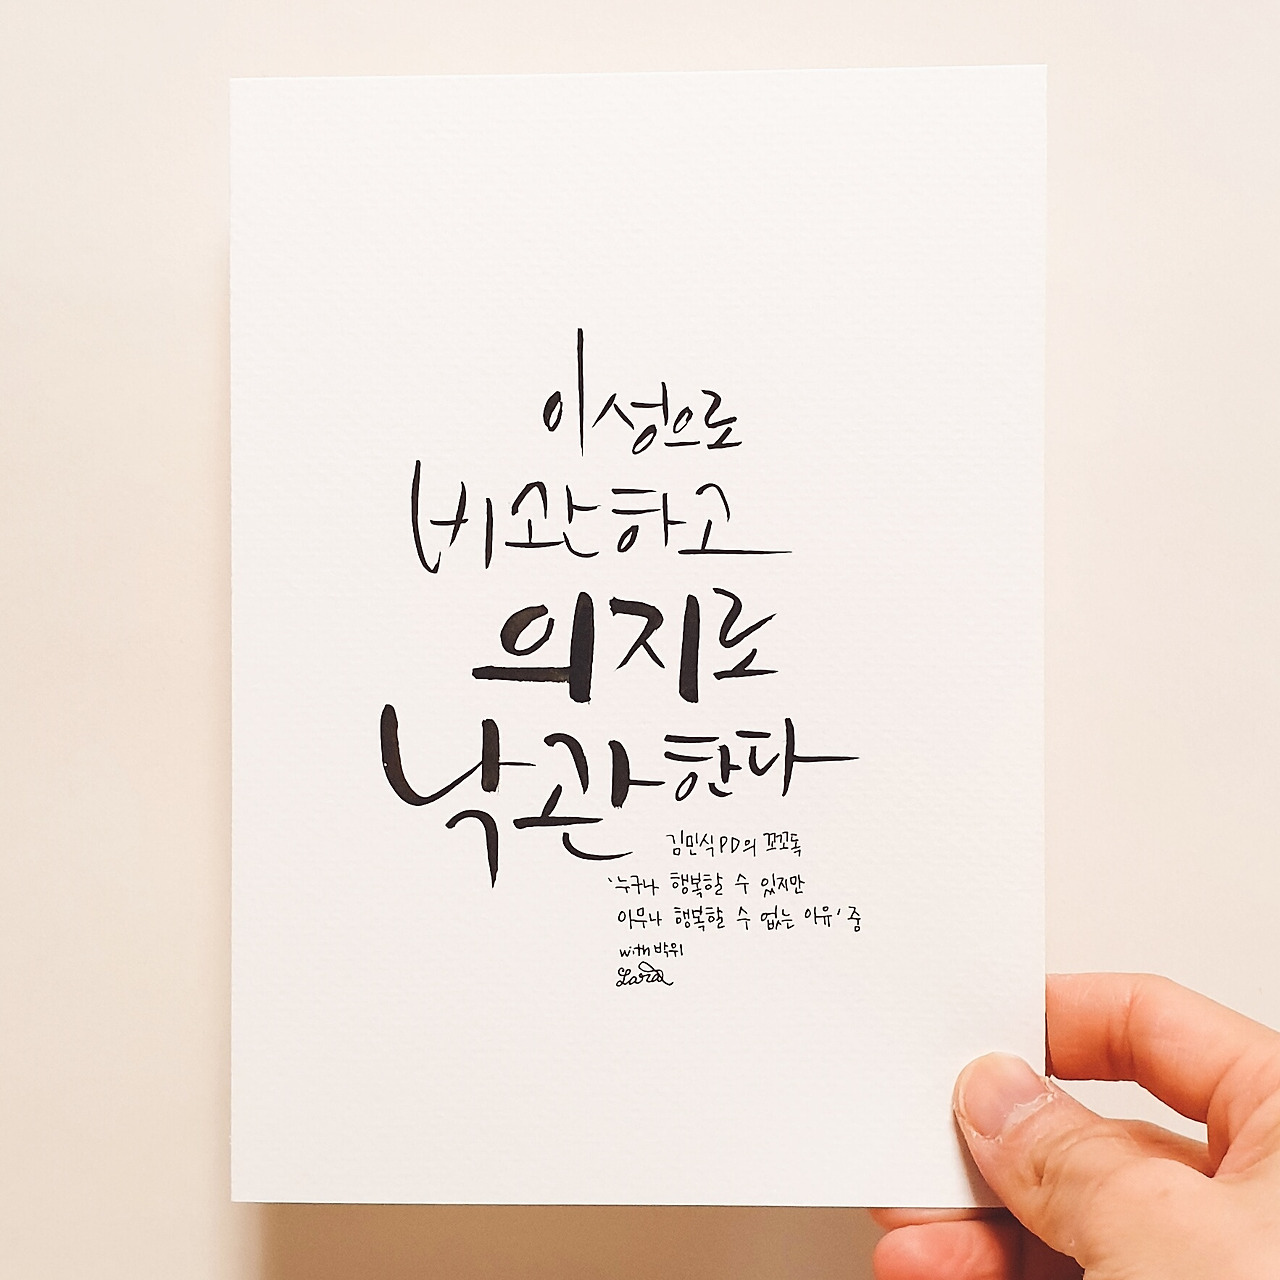 이성으로
비관하고
의지로
낙관한다
김민식PD의 꼬꼬독
'누구나 행복할 수 있지만
아무나 행복할 수 없는 이유' 중
with 박위
Lara